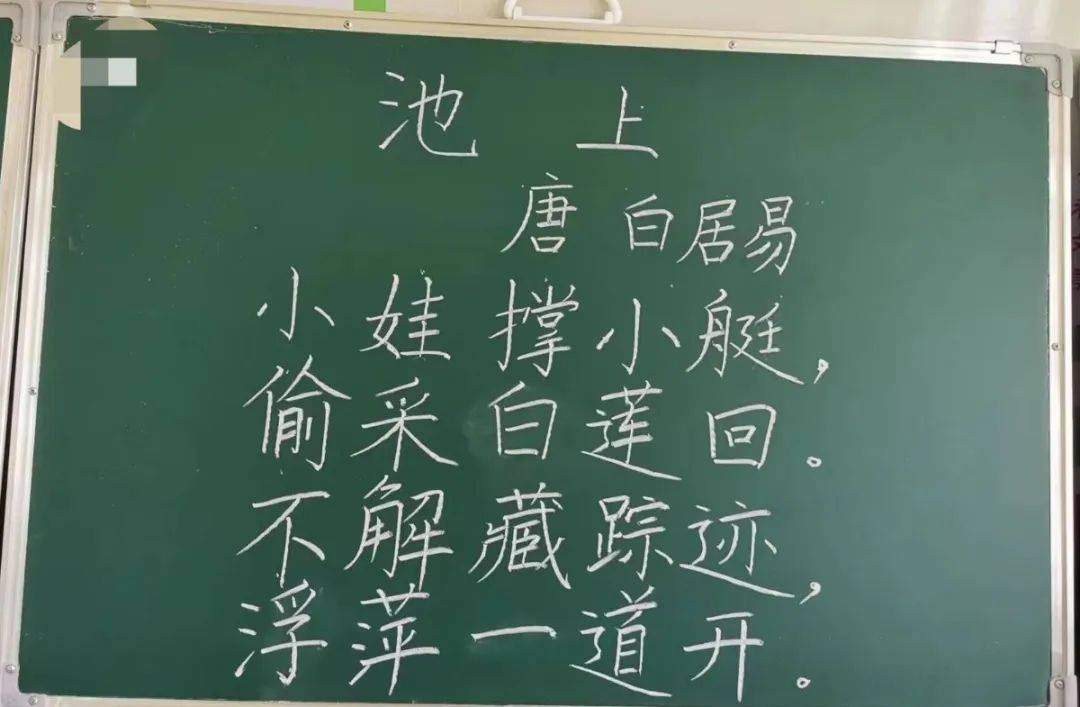 池上
唐 白居易
小娃撑小艇，
偷采白莲回。
不解藏踪迹，
浮萍一道开。